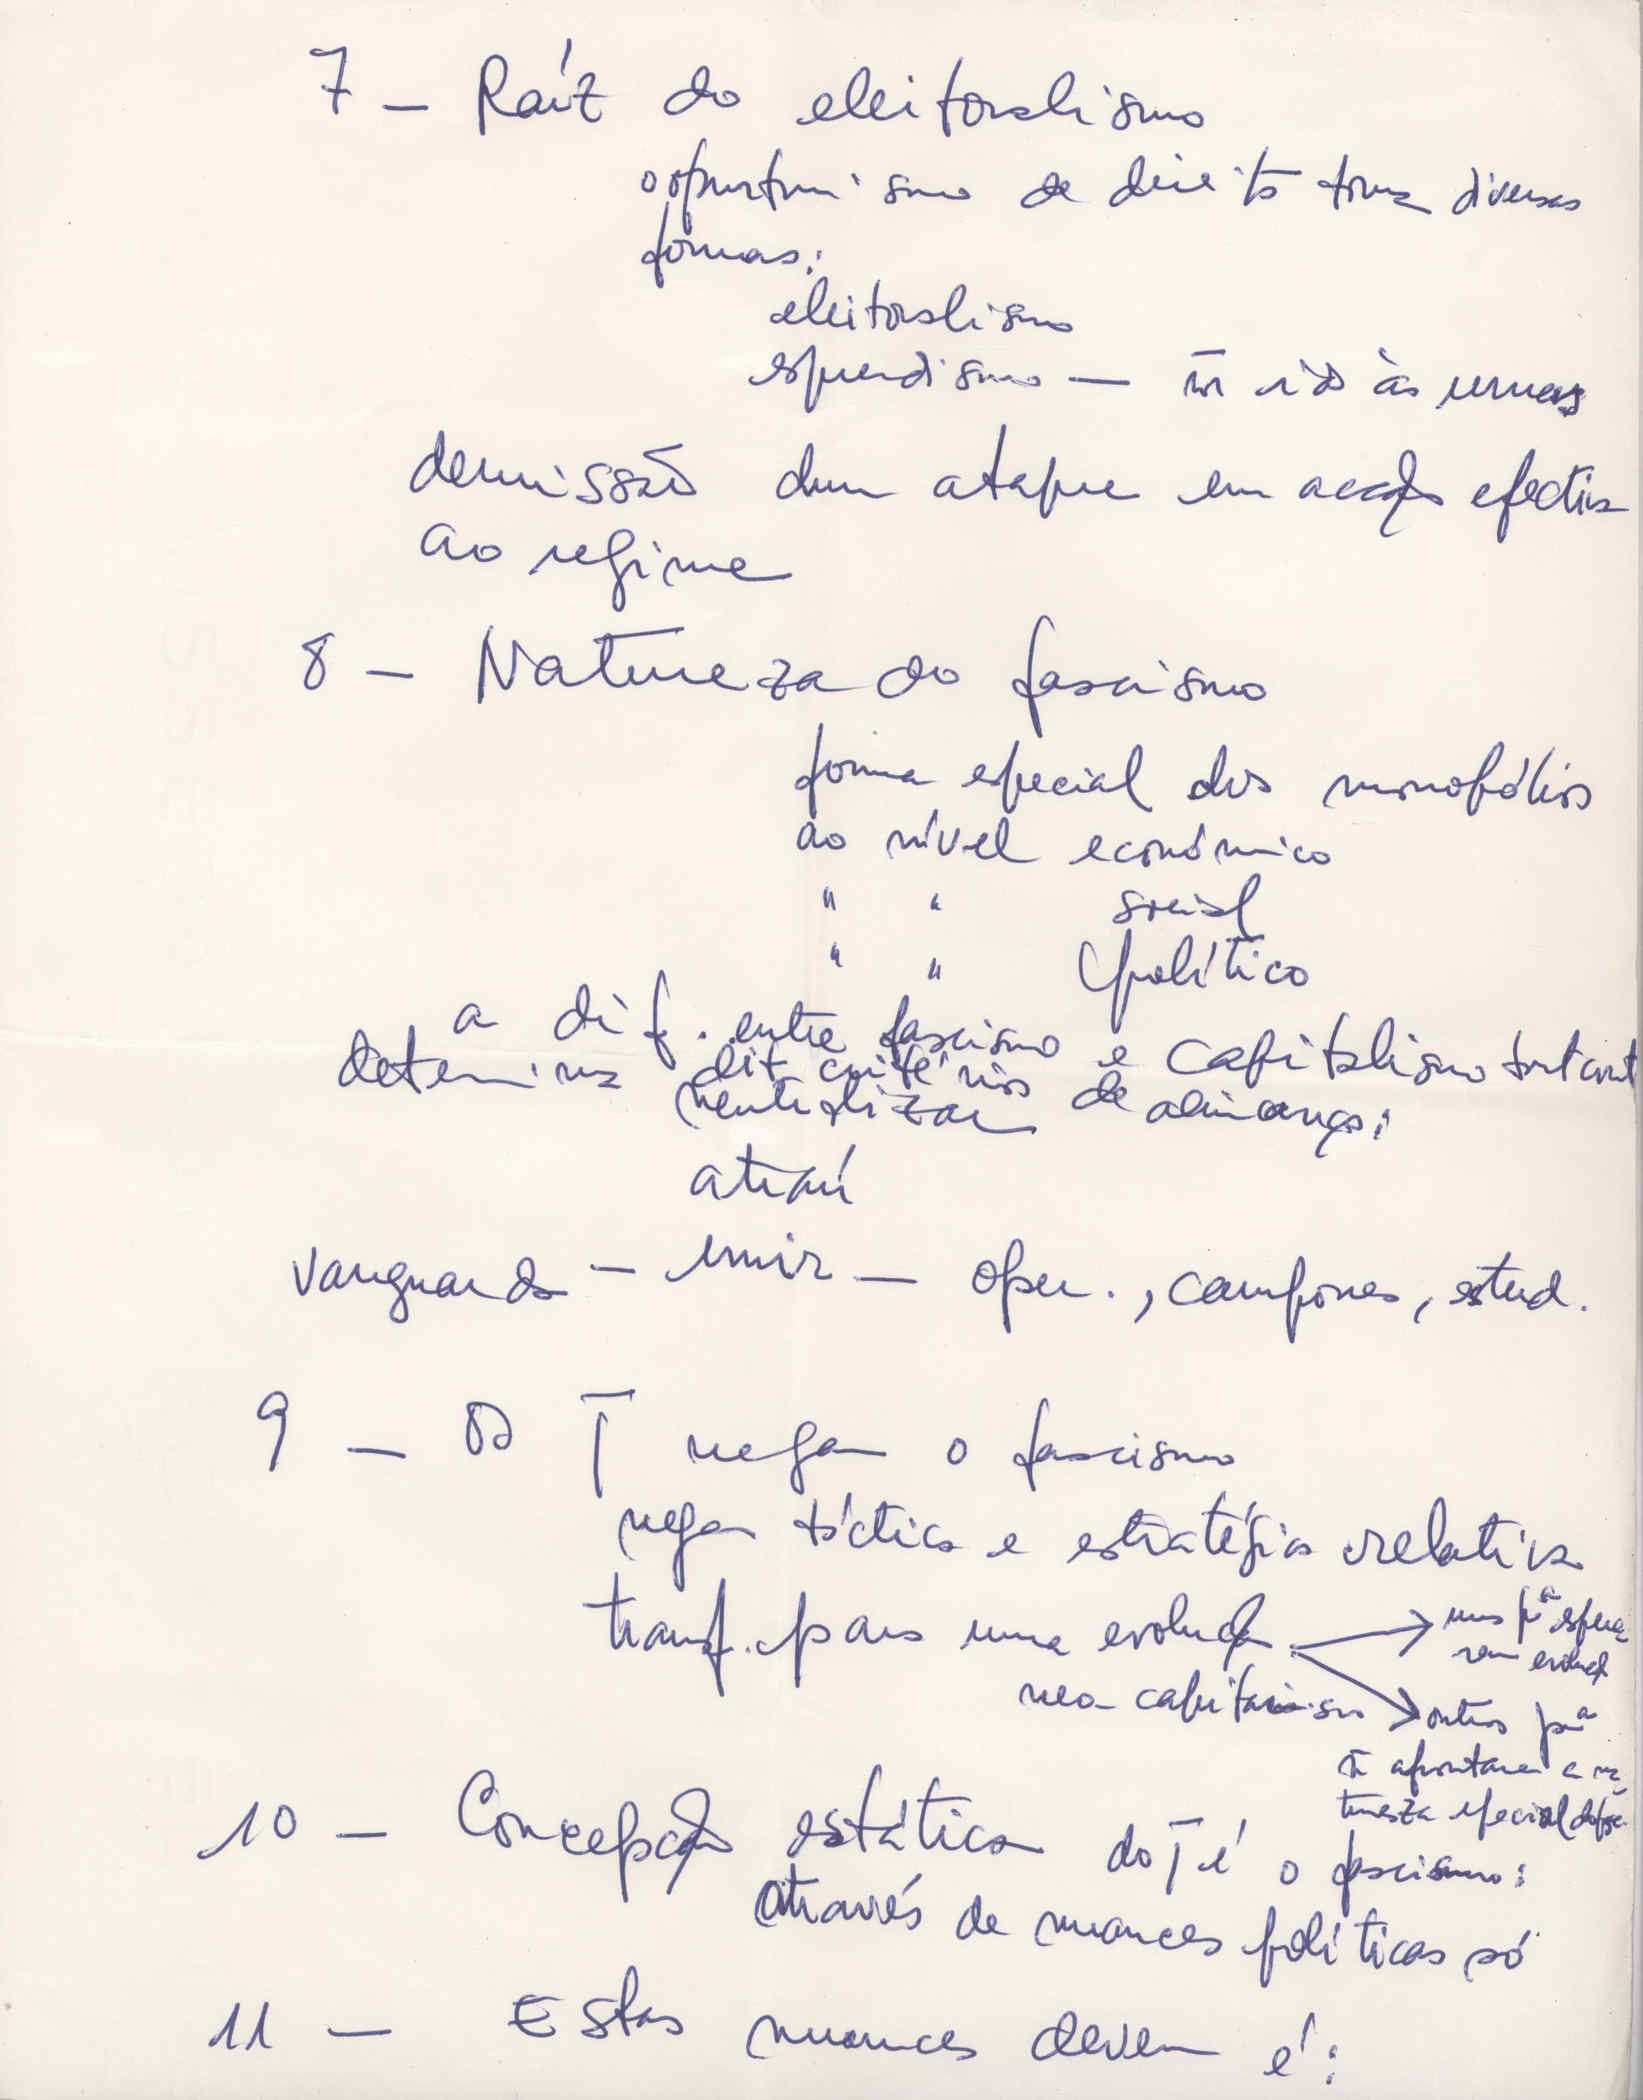 7 - Raíz do eleitoralismo
o oportunismo de direita toma diversas
formas:
eleitoralismo
esquerdismo - ñ ida às urnas
demissão dum ataque em acção efectiva
ao regime
8 - Natureza do fascismo
forma especial dos monopólios
ao nível económico
" " social
" " político
a dif. entre fascismo e capitalismo
determina critérios de aliança:
neutralizar
atraír
vanguarda - unir - oper., campones, estud.
9 - Os T negam o fascismo
nega táctica e estratégia relativa
transf. para uma evolução
neo-capitalismo
uns pª espera
rem evoluç
outros pª
ñ afrontarem a na
tureza especial do fasc.
10 - Concepção estática do T é o fascismo:
através de nuances políticas só
11 - Estas nuances devem é: